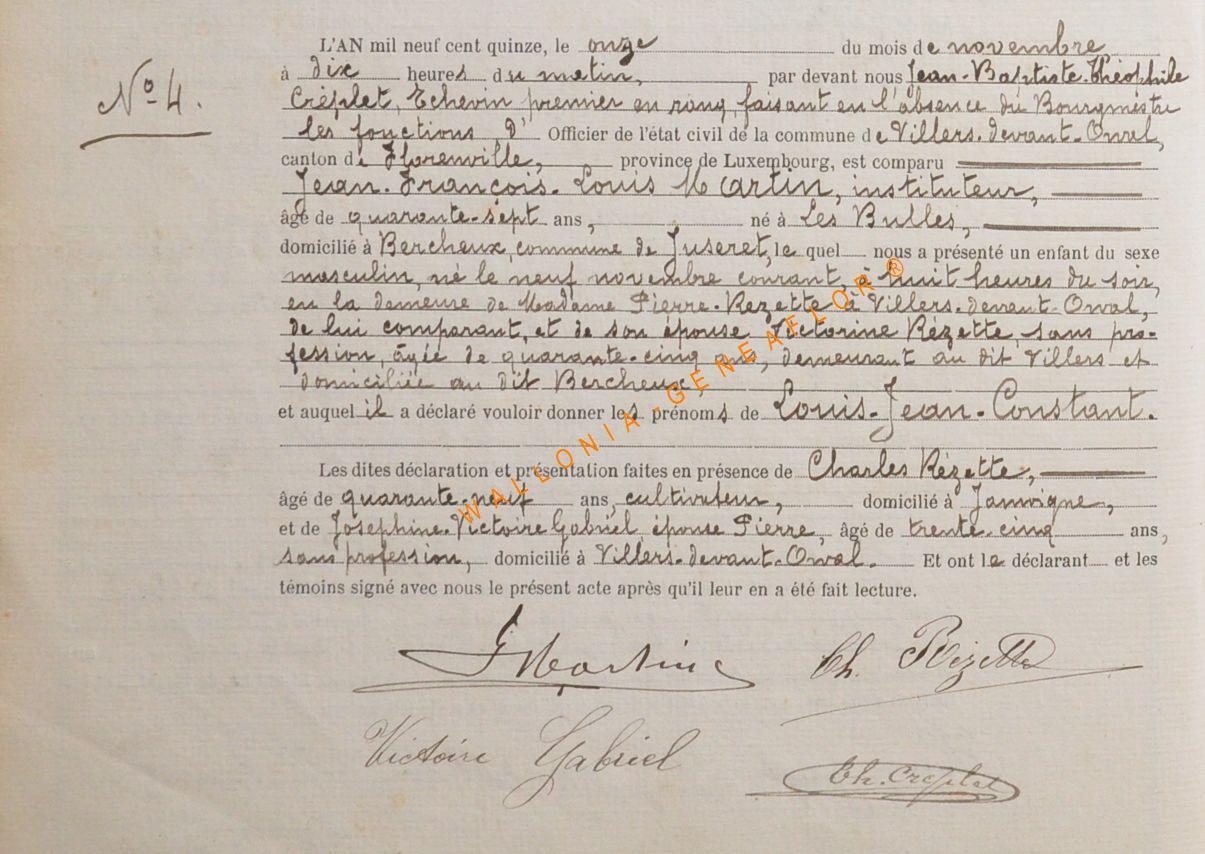 L'AN mil neuf cent quinze, le onze du mois de novembre,
N° 4.
à dix heures du matin, par devant nous Jean-Baptiste-Théophile
Créplet, Echevin premier en rang, faisant en l'absence du Bourgmestre
les fonctions d' Officier de l'état civil de la commune de Villers-devant-Orval,
canton de Florenville, province de Luxembourg, est comparu
Jean-François-Louis Martin, instituteur,
âgé de quarante-sept ans, né à Les Bulles,
domicilié à Bercheux, commune de Juseret, le quel nous a présenté un enfant du sexe
masculin, né le neuf novembre courant, à huit heures du soir,
en la demeure de Madame Pierre-Rezette à Villers-devant-Orval,
de lui comparant, et de son épouse Victorine Rézette, sans pro-
fession, âgée de quarante-cinq ans, demeurant au dit Villers et
domiciliée au dit Bercheux,
et auquel il a déclaré vouloir donner les prénoms de Louis-Jean-Constant.
Les dites déclaration et présentation faites en présence de Charles Rézette,
âgé de quarante-neuf ans, cultivateur, domicilié à Jamoigne,
et de Joséphine-Victoire Gabriel, épouse Pierre, âgé de trente-cinq ans,
sans profession, domicilié à Villers-devant-Orval. Et ont le déclarant et les
témoins signé avec nous le présent acte après qu'il leur en a été fait lecture.
J Martin Ch. Rézette
Victoire Gabriel Th. Créplet
WALLONIA-GENEAFLOR ®